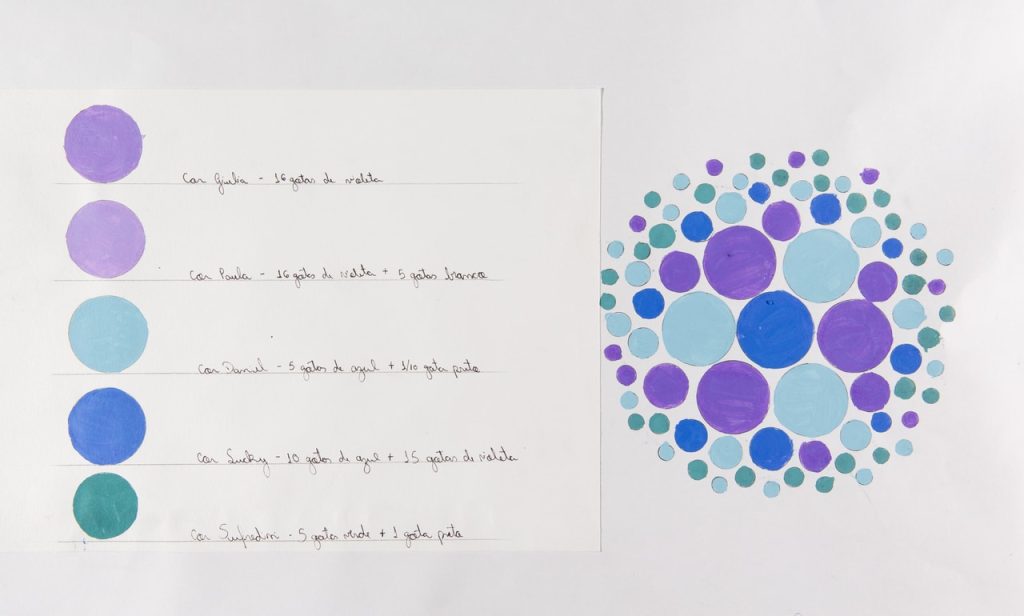 Cor Giulia - 16 gotas de violeta
Cor Paula - 16 gotas de violeta + 5 gotas branco
Cor Daniel - 5 gotas de azul + 1/10 gota preta
Cor Lucky - 10 gotas de azul + 15 gotas de violeta
Cor - 5 gotas verde + 1 gota preta